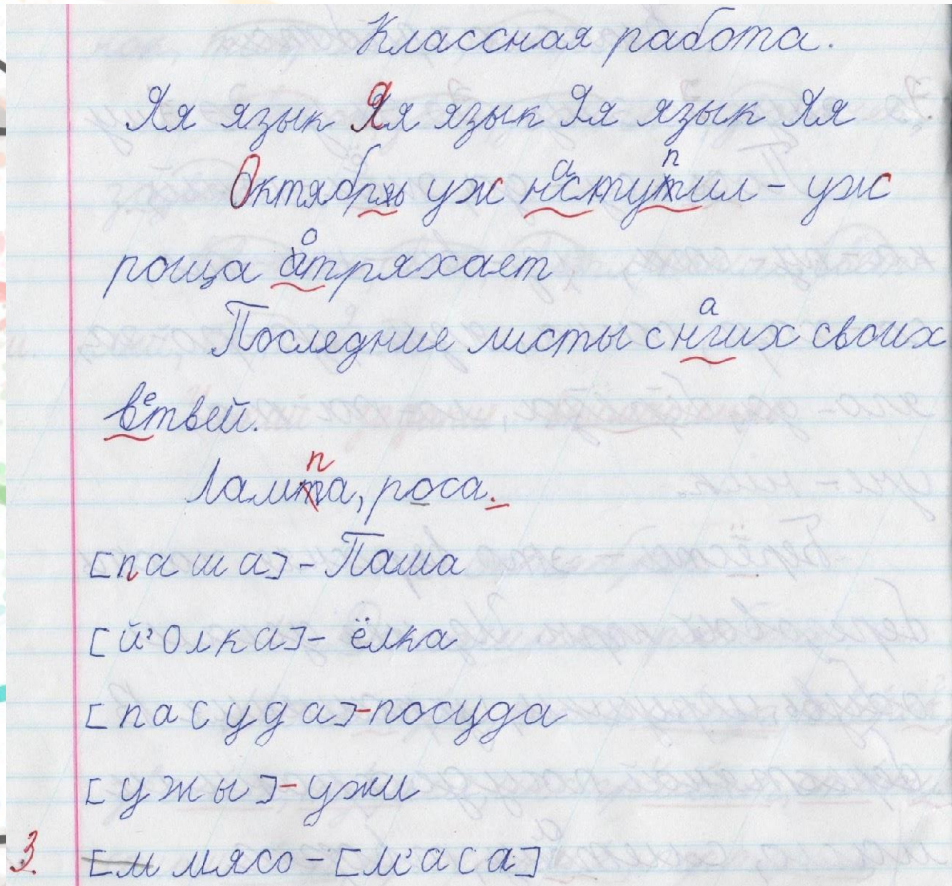 Классная работа.
Яя язык Яя язык Яя язык Яя
Октябрь уж наступил - уж
роща отряхает
Последние листы с нагих своих
ветвей.
Лампа, роса.
[паша] - Паша
[й'олка] - ёлка
[пасуда] - посуда
[ужы] - ужи
3. [м мясо - [м'аса]